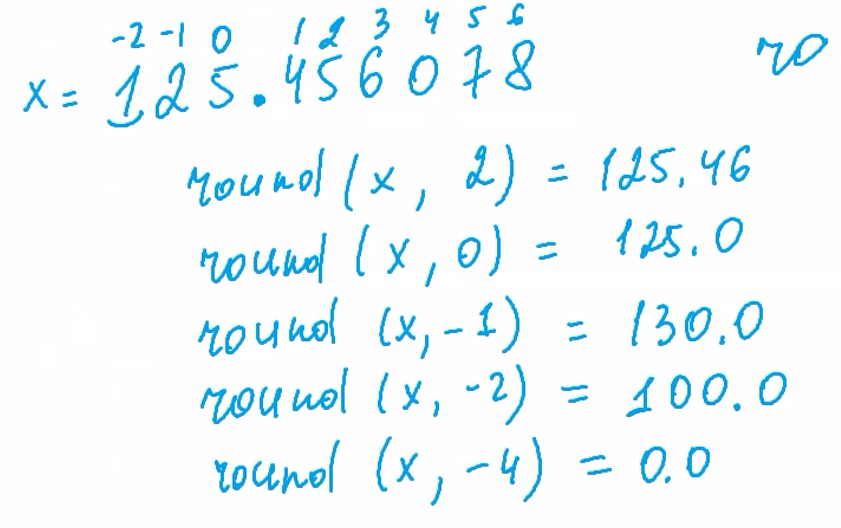 -2 -1 0 1 2 3 4 5 6
x = 125.456078
ro
round (x, 2) = 125.46
round (x, 0) = 125.0
round (x, -1) = 130.0
round (x, -2) = 100.0
round (x, -4) = 0.0